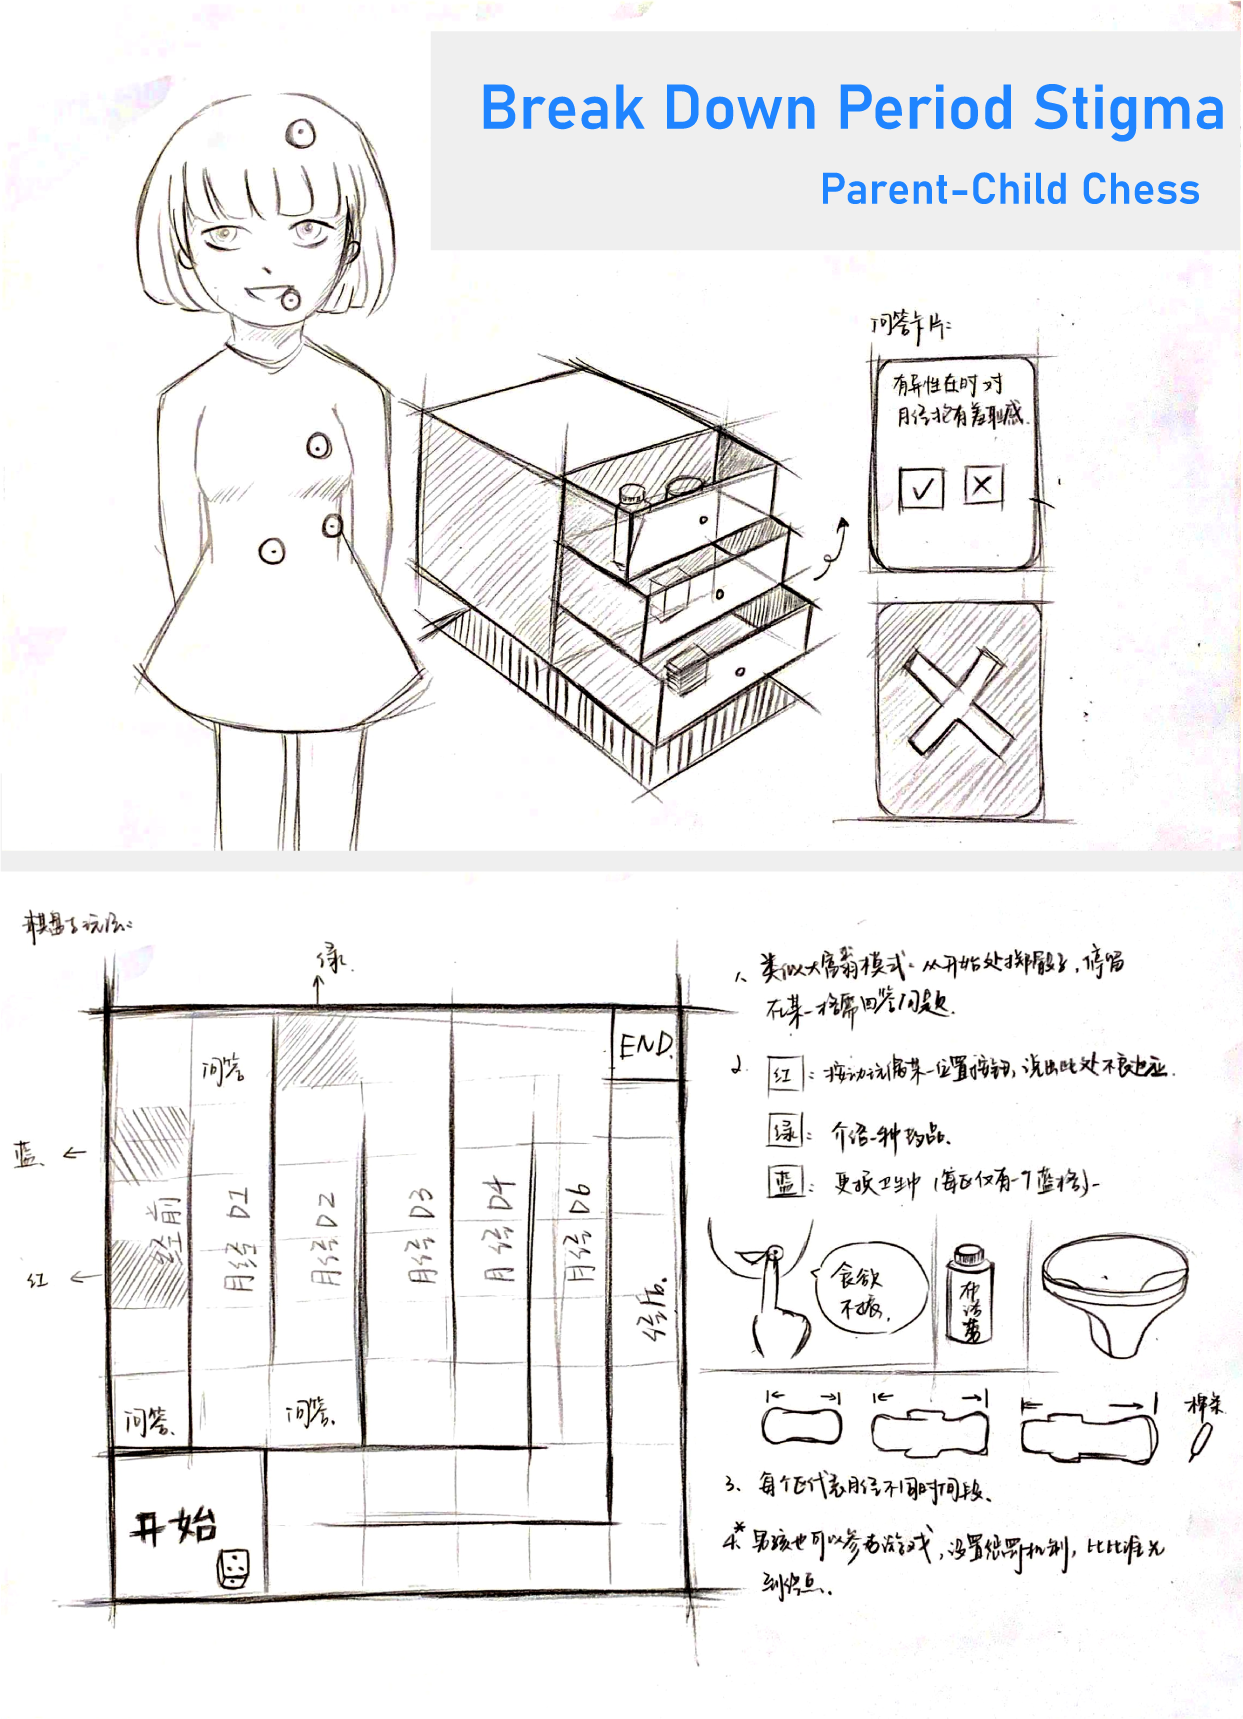 Break Down Period Stigma
Parent-Child Chess
问答卡片:
有异性在时对
月经抱有羞耻感
棋盘与玩法:
绿.
END.
问答
蓝
红
经前
月经 D1
月经 D2
月经 D3
月经 D4
月经 D6
经后.
问答.
问答.
开始
1. 类似大富翁模式. 从开始处掷骰子, 停留
在某一格需回答问题.
2. 红: 按动玩偶某一位置按钮, 说出此处不良反应.
绿: 介绍一种药品.
蓝: 更换卫生巾 (每区仅有一个蓝格).
食欲
不振.
布洛芬
棉条
3. 每个区代表月经不同时间段.
4.* 男孩也可以参与游戏, 设置惩罚机制, 比比谁先
到终点.